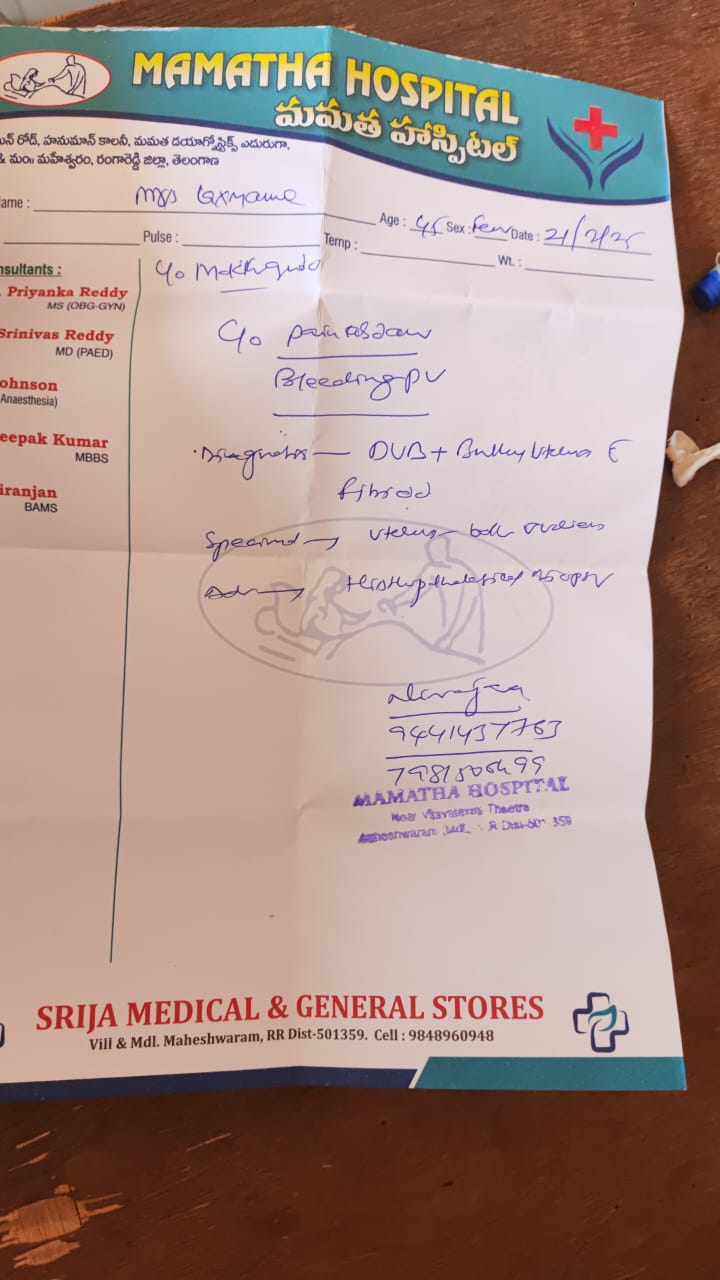 MAMATHA HOSPITAL
మమత హాస్పిటల్
రోడ్, హనుమాన్ కాలనీ, మమత డయాగ్నోస్టిక్స్ ఎదురుగా,
& మం॥ మహేశ్వరం, రంగారెడ్డి జిల్లా, తెలంగాణ
Name : Mrs Laxmamma Age : 45 Sex : Fem Date : 21/2/25
Pulse : Temp : Wt. :
nsultants :
Priyanka Reddy
MS (OBG-GYN)
Srinivas Reddy
MD (PAED)
ohnson
Anaesthesia)
eepak Kumar
MBBS
iranjan
BAMS
C/o pain abdom
Bleeding PV
Diagnosis — DUB + Bulky Uterus
fibroid
Specimed → Uterus - both ovaries
Adv → Biopsy
9441437763
MAMATHA HOSPITAL
Near Theatre
SRIJA MEDICAL & GENERAL STORES
Vill & Mdl. Maheshwaram, RR Dist-501359. Cell : 9848960948